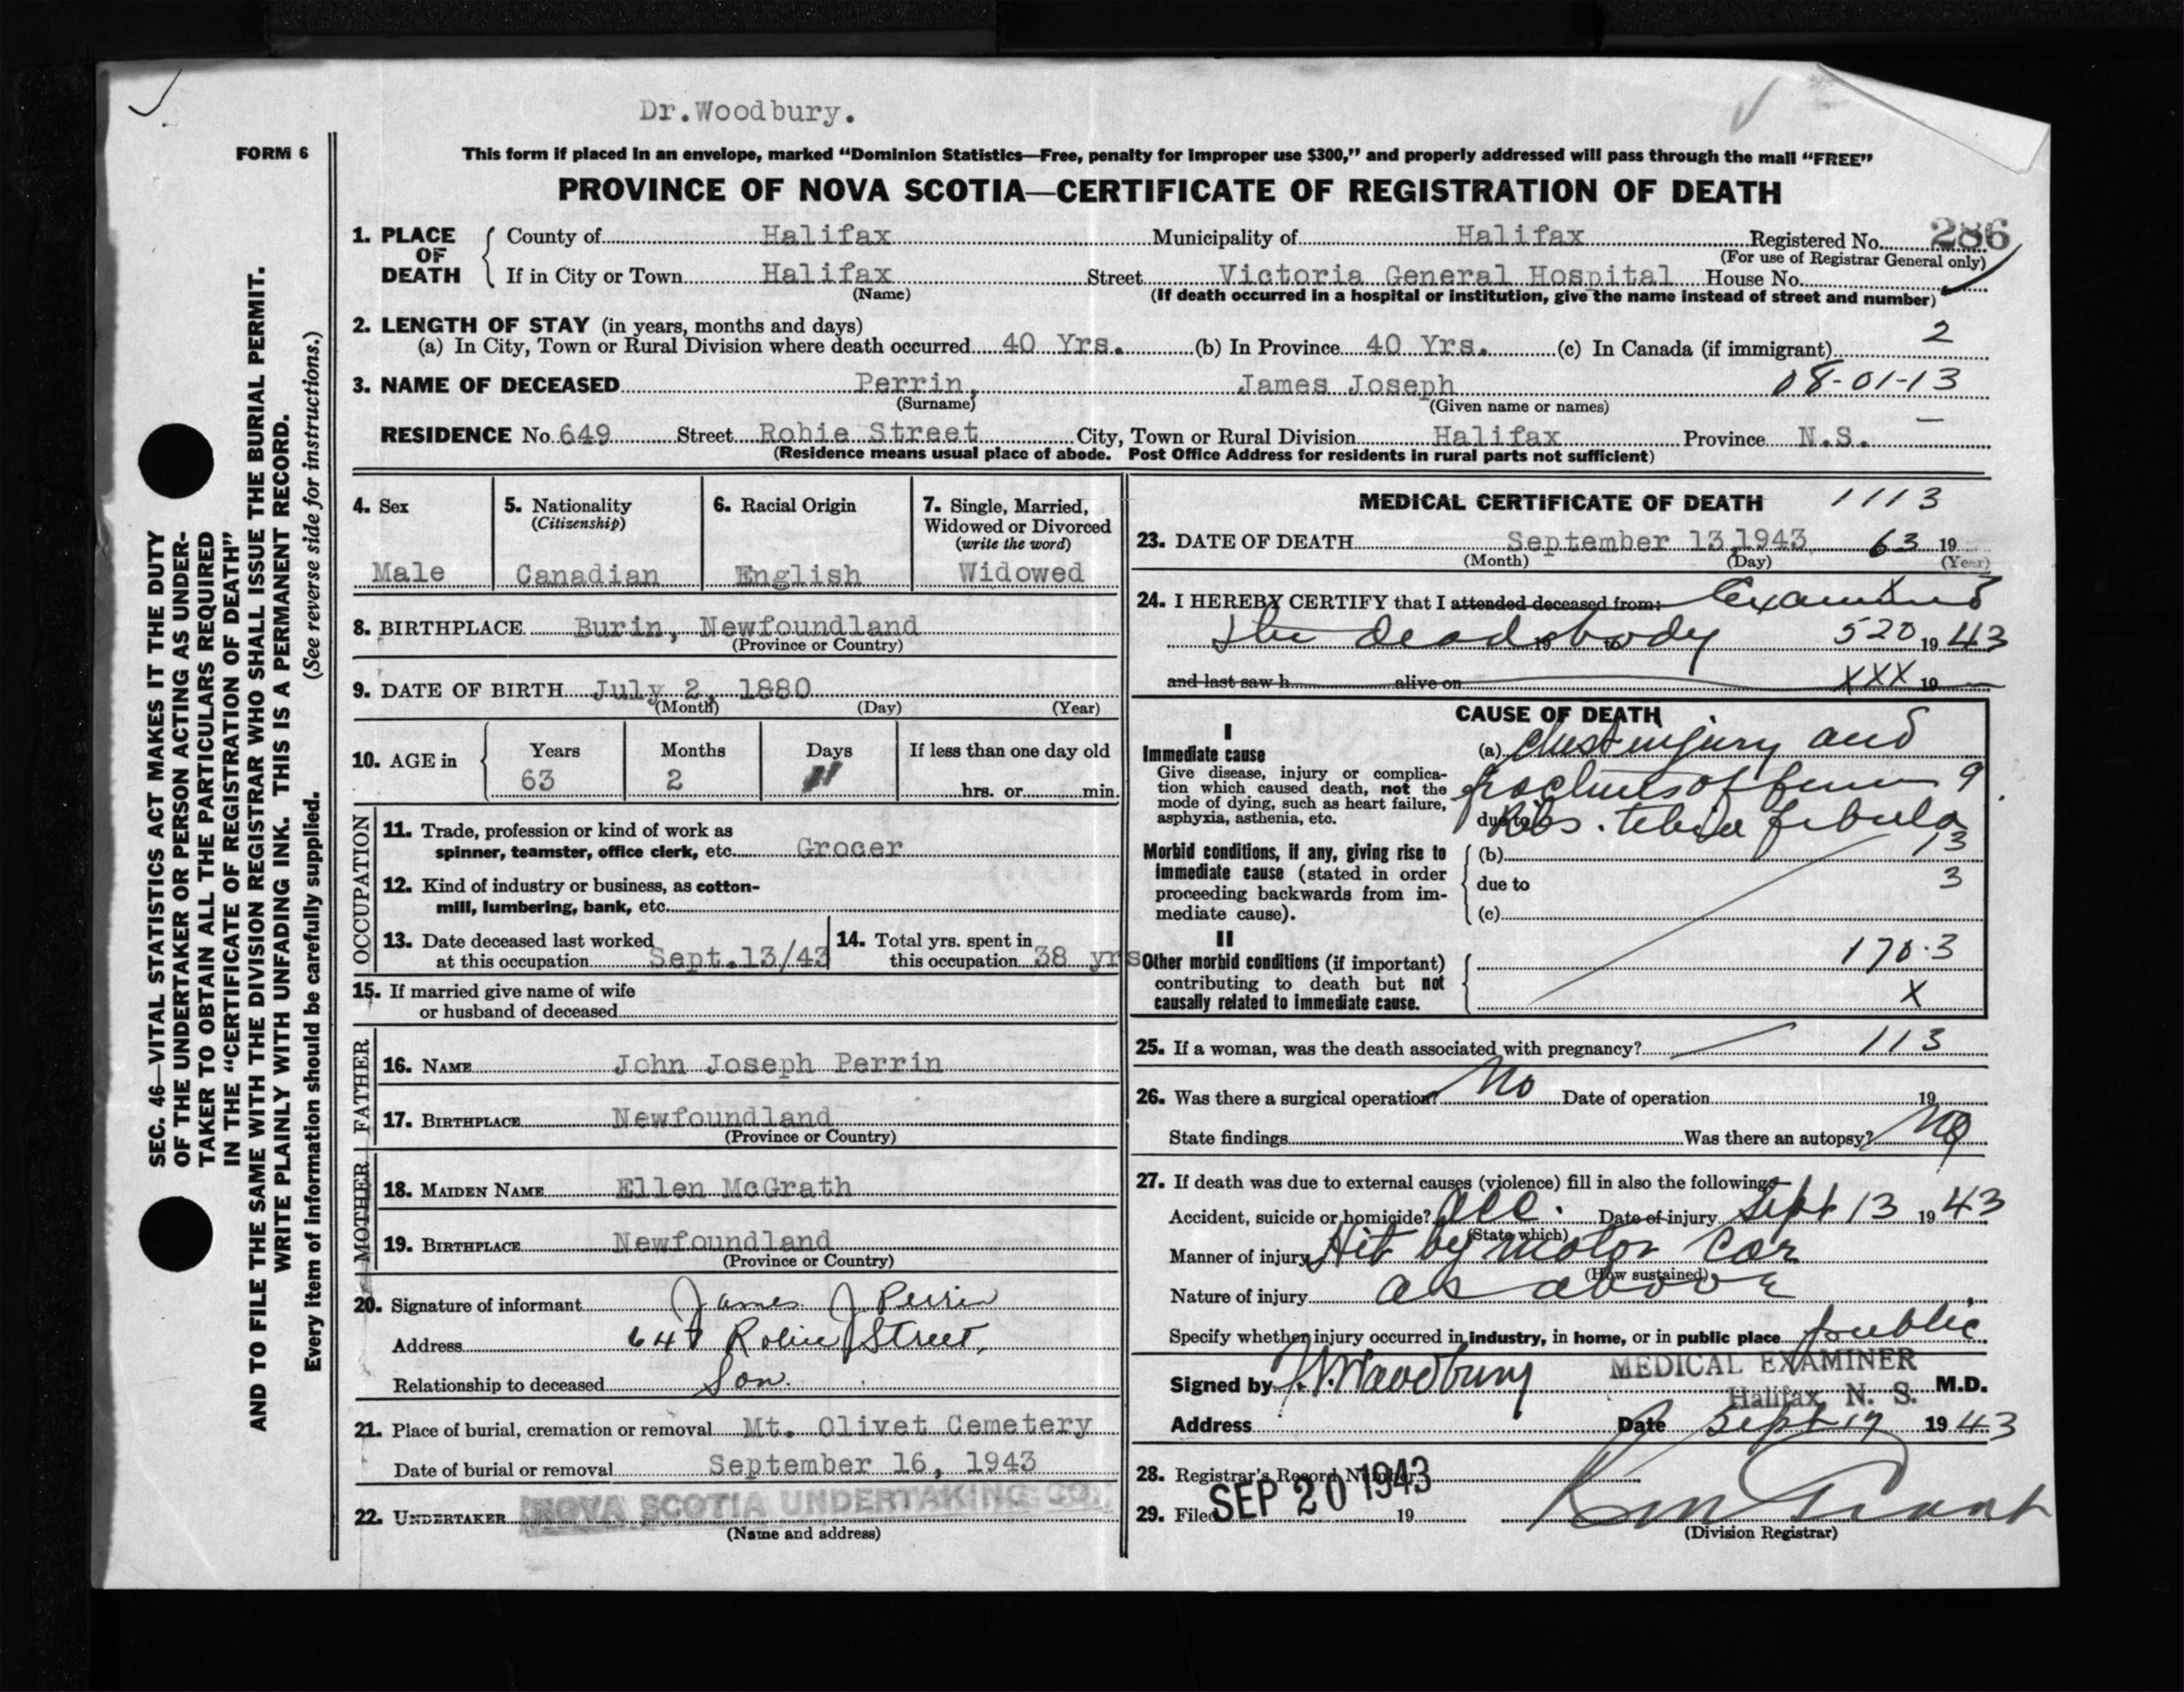 Dr.Woodbury.
FORM 6
This form if placed in an envelope, marked “Dominion Statistics—Free, penalty for improper use $300,” and properly addressed will pass through the mail “FREE”
PROVINCE OF NOVA SCOTIA—CERTIFICATE OF REGISTRATION OF DEATH
1. PLACE OF DEATH County of Halifax Municipality of Halifax Registered No. 286
(For use of Registrar General only)
If in City or Town Halifax Street Victoria General Hospital House No.
(Name) (If death occurred in a hospital or institution, give the name instead of street and number)
2. LENGTH OF STAY (in years, months and days) 2
(a) In City, Town or Rural Division where death occurred 40 Yrs. (b) In Province 40 Yrs. (c) In Canada (if immigrant)
3. NAME OF DECEASED Perrin, James Joseph 08-01-13
(Surname) (Given name or names)
RESIDENCE No. 649 Street Robie Street City, Town or Rural Division Halifax Province N.S.
(Residence means usual place of abode. Post Office Address for residents in rural parts not sufficient)
4. Sex 5. Nationality (Citizenship) 6. Racial Origin 7. Single, Married, Widowed or Divorced (write the word)
Male Canadian English Widowed
8. BIRTHPLACE Burin, Newfoundland
(Province or Country)
9. DATE OF BIRTH July 2, 1880
(Month) (Day) (Year)
10. AGE in Years Months Days If less than one day old
63 2 11 hrs. or min.
OCCUPATION
11. Trade, profession or kind of work as
spinner, teamster, office clerk, etc. Grocer
12. Kind of industry or business, as cotton-
mill, lumbering, bank, etc.
13. Date deceased last worked
at this occupation Sept.13/43
14. Total yrs. spent in
this occupation 38 yrs
15. If married give name of wife
or husband of deceased
FATHER
16. NAME John Joseph Perrin
17. BIRTHPLACE Newfoundland
(Province or Country)
MOTHER
18. MAIDEN NAME Ellen McGrath
19. BIRTHPLACE Newfoundland
(Province or Country)
20. Signature of informant James J Perrin
Address Robie Street,
Relationship to deceased Son.
21. Place of burial, cremation or removal Mt. Olivet Cemetery
Date of burial or removal September 16, 1943
22. UNDERTAKER NOVA SCOTIA UNDERTAKING CO.
(Name and address)
MEDICAL CERTIFICATE OF DEATH 1113
23. DATE OF DEATH September 13,1943 63 19
(Month) (Day) (Year)
24. I HEREBY CERTIFY that I attended deceased from: Examined
the dead body 19 to 520 19 43
and last saw h alive on XXX 19
CAUSE OF DEATH
I
Immediate cause (a) Chest injury and
Give disease, injury or complica-
tion which caused death, not the
mode of dying, such as heart failure,
asphyxia, asthenia, etc.
fractures of femur 9
due to Ribs. tibia fibula
Morbid conditions, if any, giving rise to
immediate cause (stated in order
proceeding backwards from im-
mediate cause).
(b) 13
due to 3
(c)
II
Other morbid conditions (if important)
contributing to death but not
causally related to immediate cause.
170.3
X
25. If a woman, was the death associated with pregnancy? 113
26. Was there a surgical operation? No Date of operation 19
State findings Was there an autopsy? No
27. If death was due to external causes (violence) fill in also the following:—
Accident, suicide or homicide? Acc. Date of injury Sept 13 19 43
(State which)
Manner of injury Hit by motor car
(How sustained)
Nature of injury as above
Specify whether injury occurred in industry, in home, or in public place public
Signed by Woodbury MEDICAL EXAMINER
Halifax, N. S. M.D.
Address Date Sept 17 19 43
28. Registrar's Record Number
29. Filed SEP 20 1943 19
(Division Registrar)
SEC. 46—VITAL STATISTICS ACT MAKES IT THE DUTY
OF THE UNDERTAKER OR PERSON ACTING AS UNDER-
TAKER TO OBTAIN ALL THE PARTICULARS REQUIRED
IN THE “CERTIFICATE OF REGISTRATION OF DEATH”
AND TO FILE THE SAME WITH THE DIVISION REGISTRAR WHO SHALL ISSUE THE BURIAL PERMIT.
WRITE PLAINLY WITH UNFADING INK. THIS IS A PERMANENT RECORD.
Every item of information should be carefully supplied. (See reverse side for instructions.)